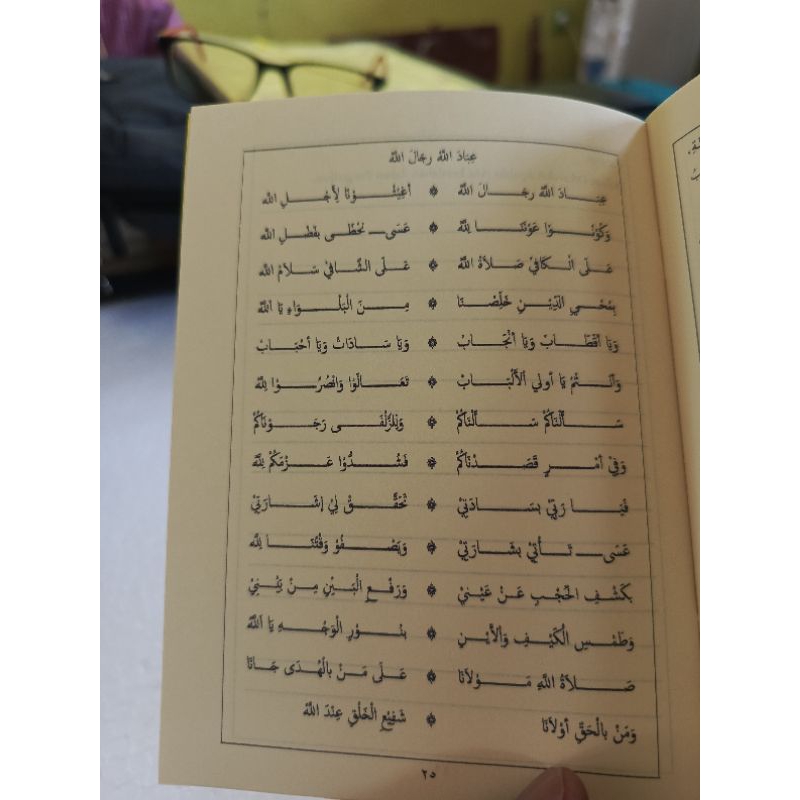 عِبَادَ اللهِ رِجَالَ اللهِ
عِبَادَ اللهِ رِجَالَ اللهِ ۞ أَغِيْثُوْنَا لِأَجْلِ اللهِ
وَكُوْنُوْا عَوْنَنَا لِلّٰهِ ۞ عَسَى نَحْظَى بِفَضْلِ اللهِ
عَلَى الْكَافِيْ صَلَاةُ اللهِ ۞ عَلَى الشَّافِيْ سَلَامُ اللهِ
بِمُحْيِي الدِّيْنِ خَلِّصْنَا ۞ مِنَ الْبَلْوَاءِ يَا اَللهُ
وَيَا أَقْطَابْ وَيَا أَنْجَابْ ۞ وَيَا سَادَاتْ وَيَا أَحْبَابْ
وَأَنْتُمْ يَا أُولِي الْأَلْبَابْ ۞ تَعَالَوْا وَانْصُرُوْا لِلّٰهِ
سَأَلْنَاكُمْ سَأَلْنَاكُمْ ۞ وَلِلزُّلْفَى رَجَوْنَاكُمْ
وَفِيْ أَمْرٍ قَصَدْنَاكُمْ ۞ فَشُدُّوْا عَزْمَكُمْ لِلّٰهِ
فَيَا رَبِّيْ بِسَادَتِيْ ۞ تَحَقَّقْ لِيْ إِشَارَتِيْ
عَسَى تَأْتِيْ بِشَارَتِيْ ۞ وَيَصْفُوْ وَقْتُنَا لِلّٰهِ
بِكَشْفِ الْحُجْبِ عَنْ عَيْنِيْ ۞ وَرَفْعِ الْبَيْنِ مِنْ بَيْنِيْ
وَطَمْسِ الْكَيْفِ وَالْأَيْنِ ۞ بِنُوْرِ الْوَجْهِ يَا اَللهُ
صَلَاةُ اللهِ مَوْلَانَا ۞ عَلَى مَنْ بِالْهُدَى جَانَا
وَمَنْ بِالْحَقِّ أَوْلَانَا ۞ شَفِيْعِ الْخَلْقِ عِنْدَ اللهِ
٢٥